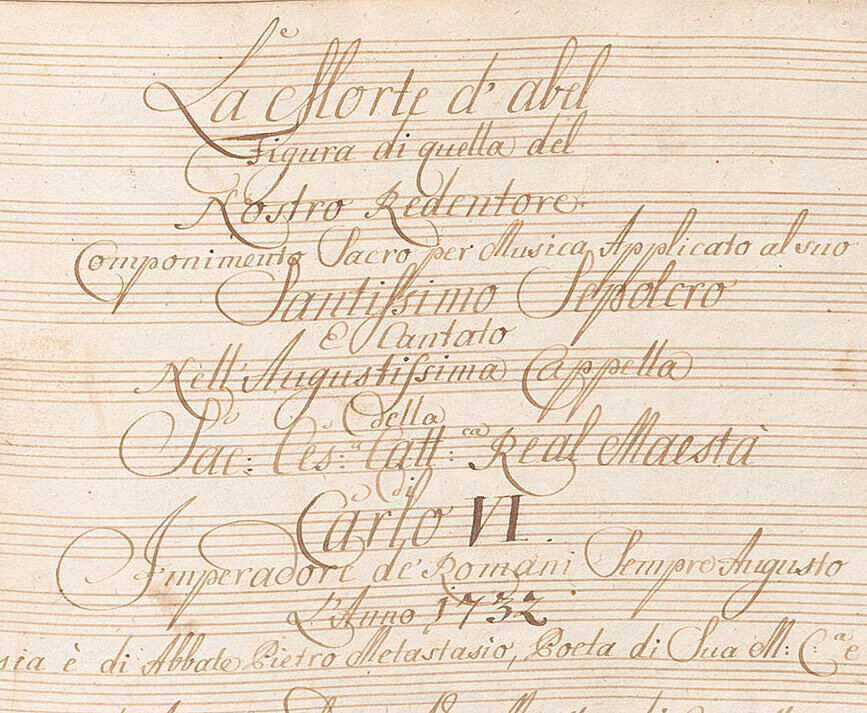 La Morte d'abel
Figura di quella del
Nostro Redentore.
Componimento Sacro per Musica Applicato al suo
Santissimo Sepolcro
E Cantato
Nell'Augustissima Cappella
della
Sac: Ces:ᵃ Catt:ᶜᵃ Real Maestà
di
Carlo VI.
Imperadore de' Romani Sempre Augusto
L'Anno 1732
sia è di Abbate Pietro Metastasio, Poeta di Sua M: C:ᵃ e